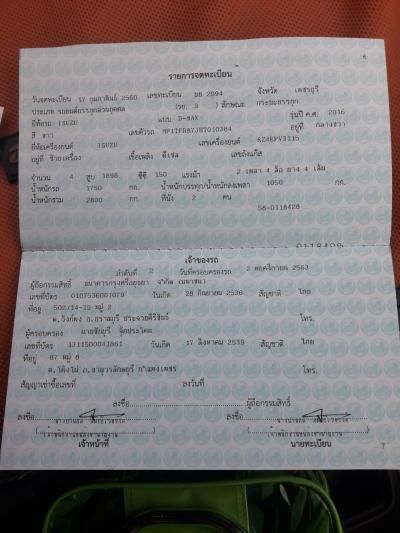 6
รายการจดทะเบียน
วันจดทะเบียน 17 กุมภาพันธ์ 2560 เลขทะเบียน บบ 2094 จังหวัด เพชรบุรี
ประเภท รถยนต์บรรทุกส่วนบุคคล (รย. 3 ) ลักษณะ กระบะบรรทุก
ยี่ห้อรถ ISUZU แบบ D-MAX รุ่นปี ค.ศ. 2016
สี ขาว เลขตัวรถ MP1TFR87JHT010384 อยู่ที่ กลางขวา
ยี่ห้อเครื่องยนต์ ISUZU เลขเครื่องยนต์ RZ4EPV3115
อยู่ที่ ซ้ายเครื่อง เชื้อเพลิง ดีเซล เลขถังแก๊ส
จำนวน 4 สูบ 1898 ซีซี 150 แรงม้า 2 เพลา 4 ล้อ ยาง 4 เส้น
น้ำหนักรถ 1750 กก. น้ำหนักบรรทุก/น้ำหนักลงเพลา 1050 กก.
น้ำหนักรวม 2800 กก. ที่นั่ง 2 คน
58-0118428
เจ้าของรถ
ลำดับที่ 2 วันที่ครอบครองรถ 2 พฤศจิกายน 2563
ผู้ถือกรรมสิทธิ์ ธนาคารกรุงศรีอยุธยา จำกัด (มหาชน)
เลขที่บัตร 0107536001079 วันเกิด 28 กันยายน 2536 สัญชาติ ไทย
ที่อยู่ 502/14-15 หมู่ 2
โทร.
ผู้ครอบครอง
เลขที่บัตร วันเกิด 17 สิงหาคม 2539 สัญชาติ ไทย
ที่อยู่ 87 หมู่ 8
โทร.
สัญญาเช่าซื้อเลขที่ ลงวันที่
ลงชื่อ ผู้ถือกรรมสิทธิ์
ลงชื่อ ลงชื่อ
เจ้าหน้าที่ นายทะเบียน
7